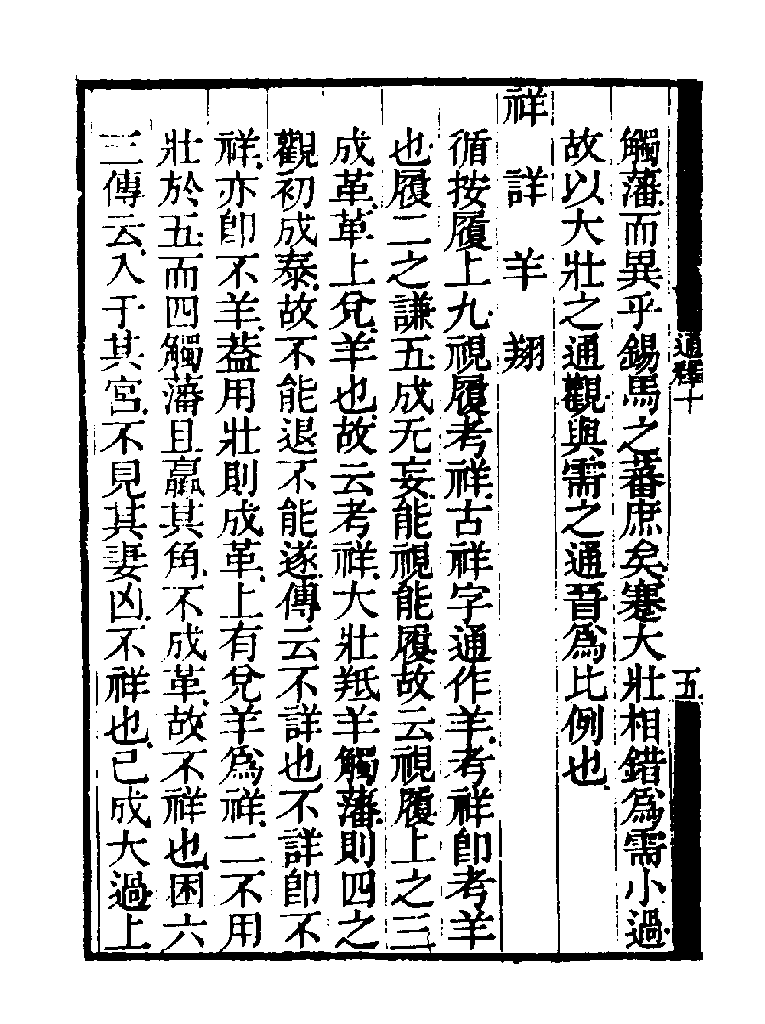 觸藩而異乎錫馬之蕃庶矣蹇大壯相錯爲需小過
故以大壯之通觀與需之通晉爲比例也
祥詳羊翔
循按履上九視履考祥古祥字通作羊考祥卽考羊
也履二之謙五成无妄能視能履故云視履上之三
成革革上兌羊也故云考祥大壯羝羊觸藩則四之
觀初成泰故不能退不能遂傳云不詳也不詳卽不
祥亦卽不羊葢用壯則成革上有兌羊爲祥二不用
壯於五而四觸藩且羸其角不成革故不祥也困六
三傳云入于其宮不見其妻凶不祥也已成大過上
通釋十
五